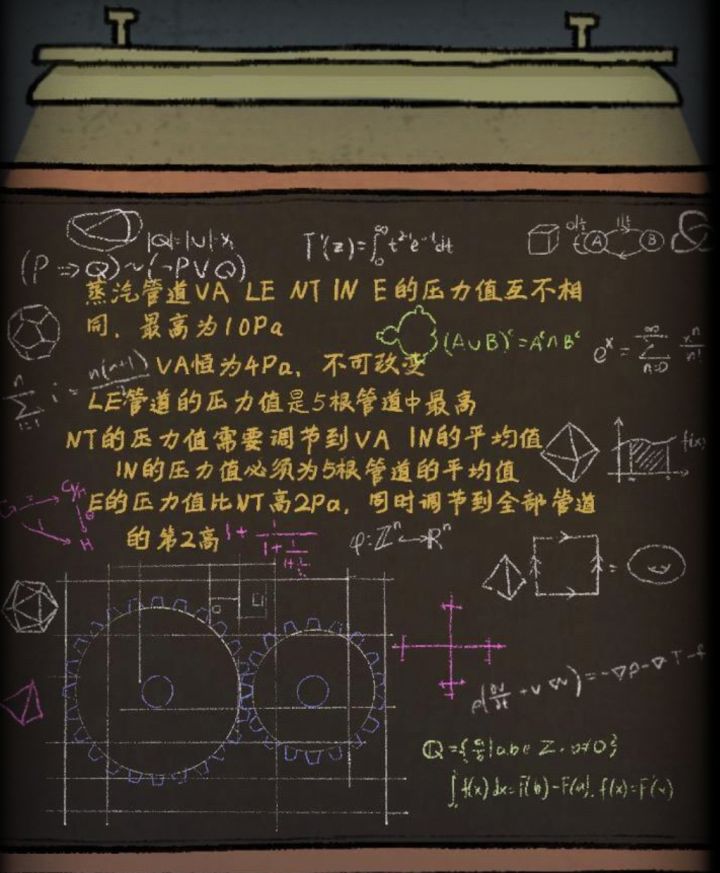 |Q|=|U|-x,
T'(z)=∫₀^∞ t^(z-1)e^(-t)dt
A B
(P ⇒ Q)~(¬P∨Q)
蒸汽管道VA LE NT IN E的压力值互不相
同，最高为10Pa
(A∪B)ᶜ=Aᶜ∩Bᶜ
eˣ = ∑_{n=0}^∞ xⁿ/n!
∑_{i=1}^n i = n(n+1)
VA恒为4Pa，不可改变
LE管道的压力值是5根管道中最高
NT的压力值需要调节到VA IN的平均值
f(x)
IN的压力值必须为5根管道的平均值
E的压力值比NT高2Pa，同时调节到全部管道
的第2高
φ:ℤⁿ↔ℝⁿ
H